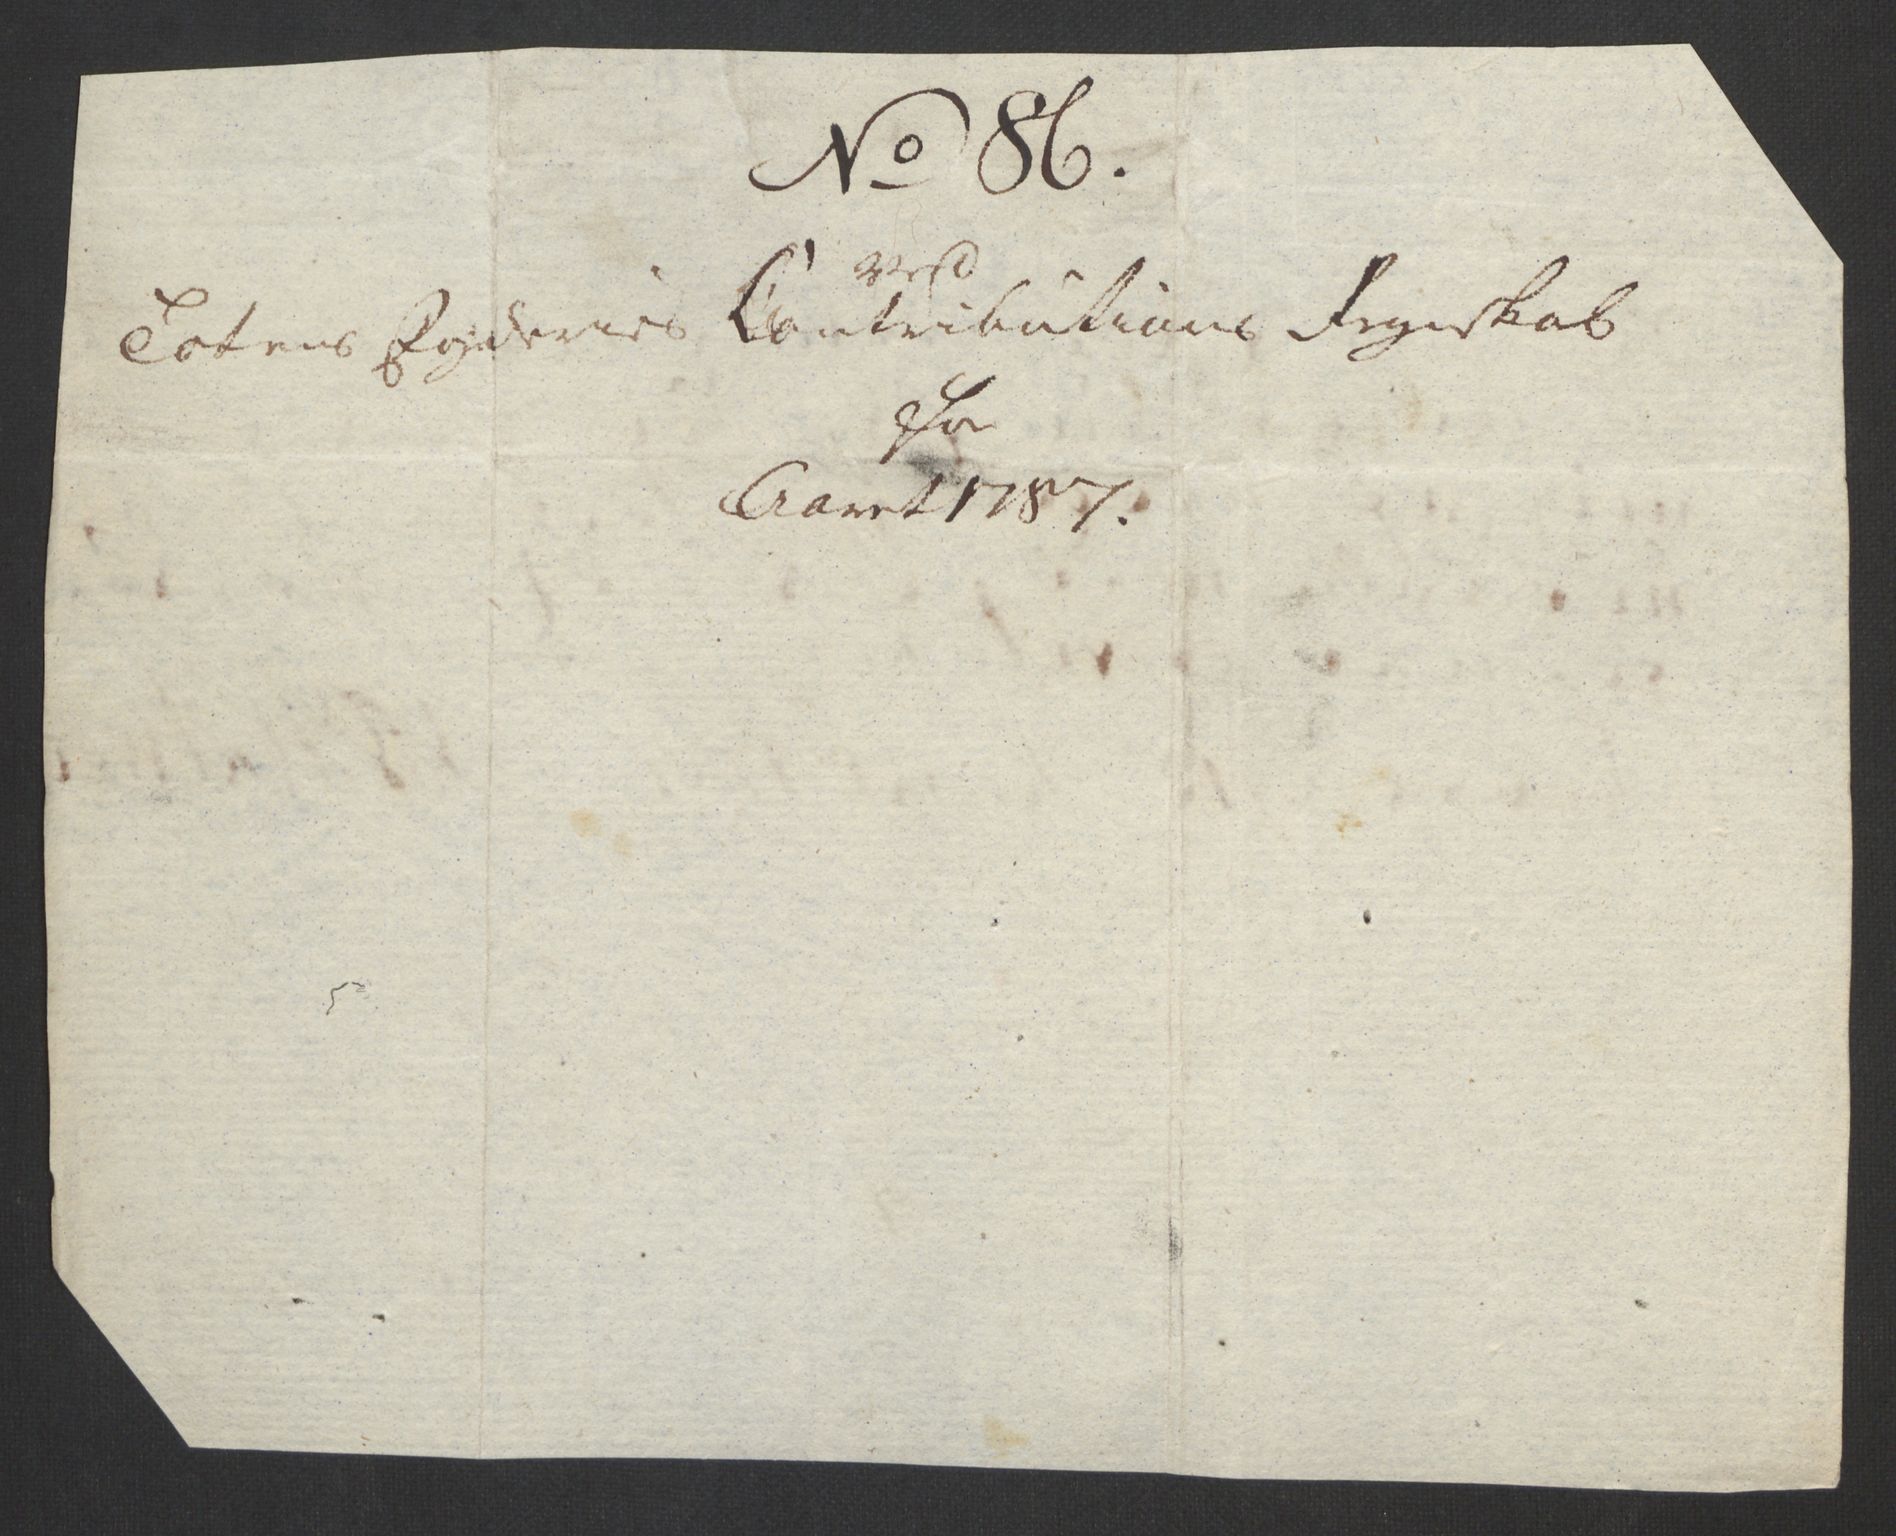 No 86.
Totens Fogderies Contributions Regnskab
For
Aaret 1787.